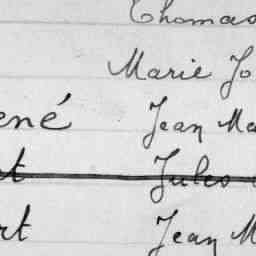 Thomas
Marie Jo
ené Jean Ma
t Jules
rt Jean M